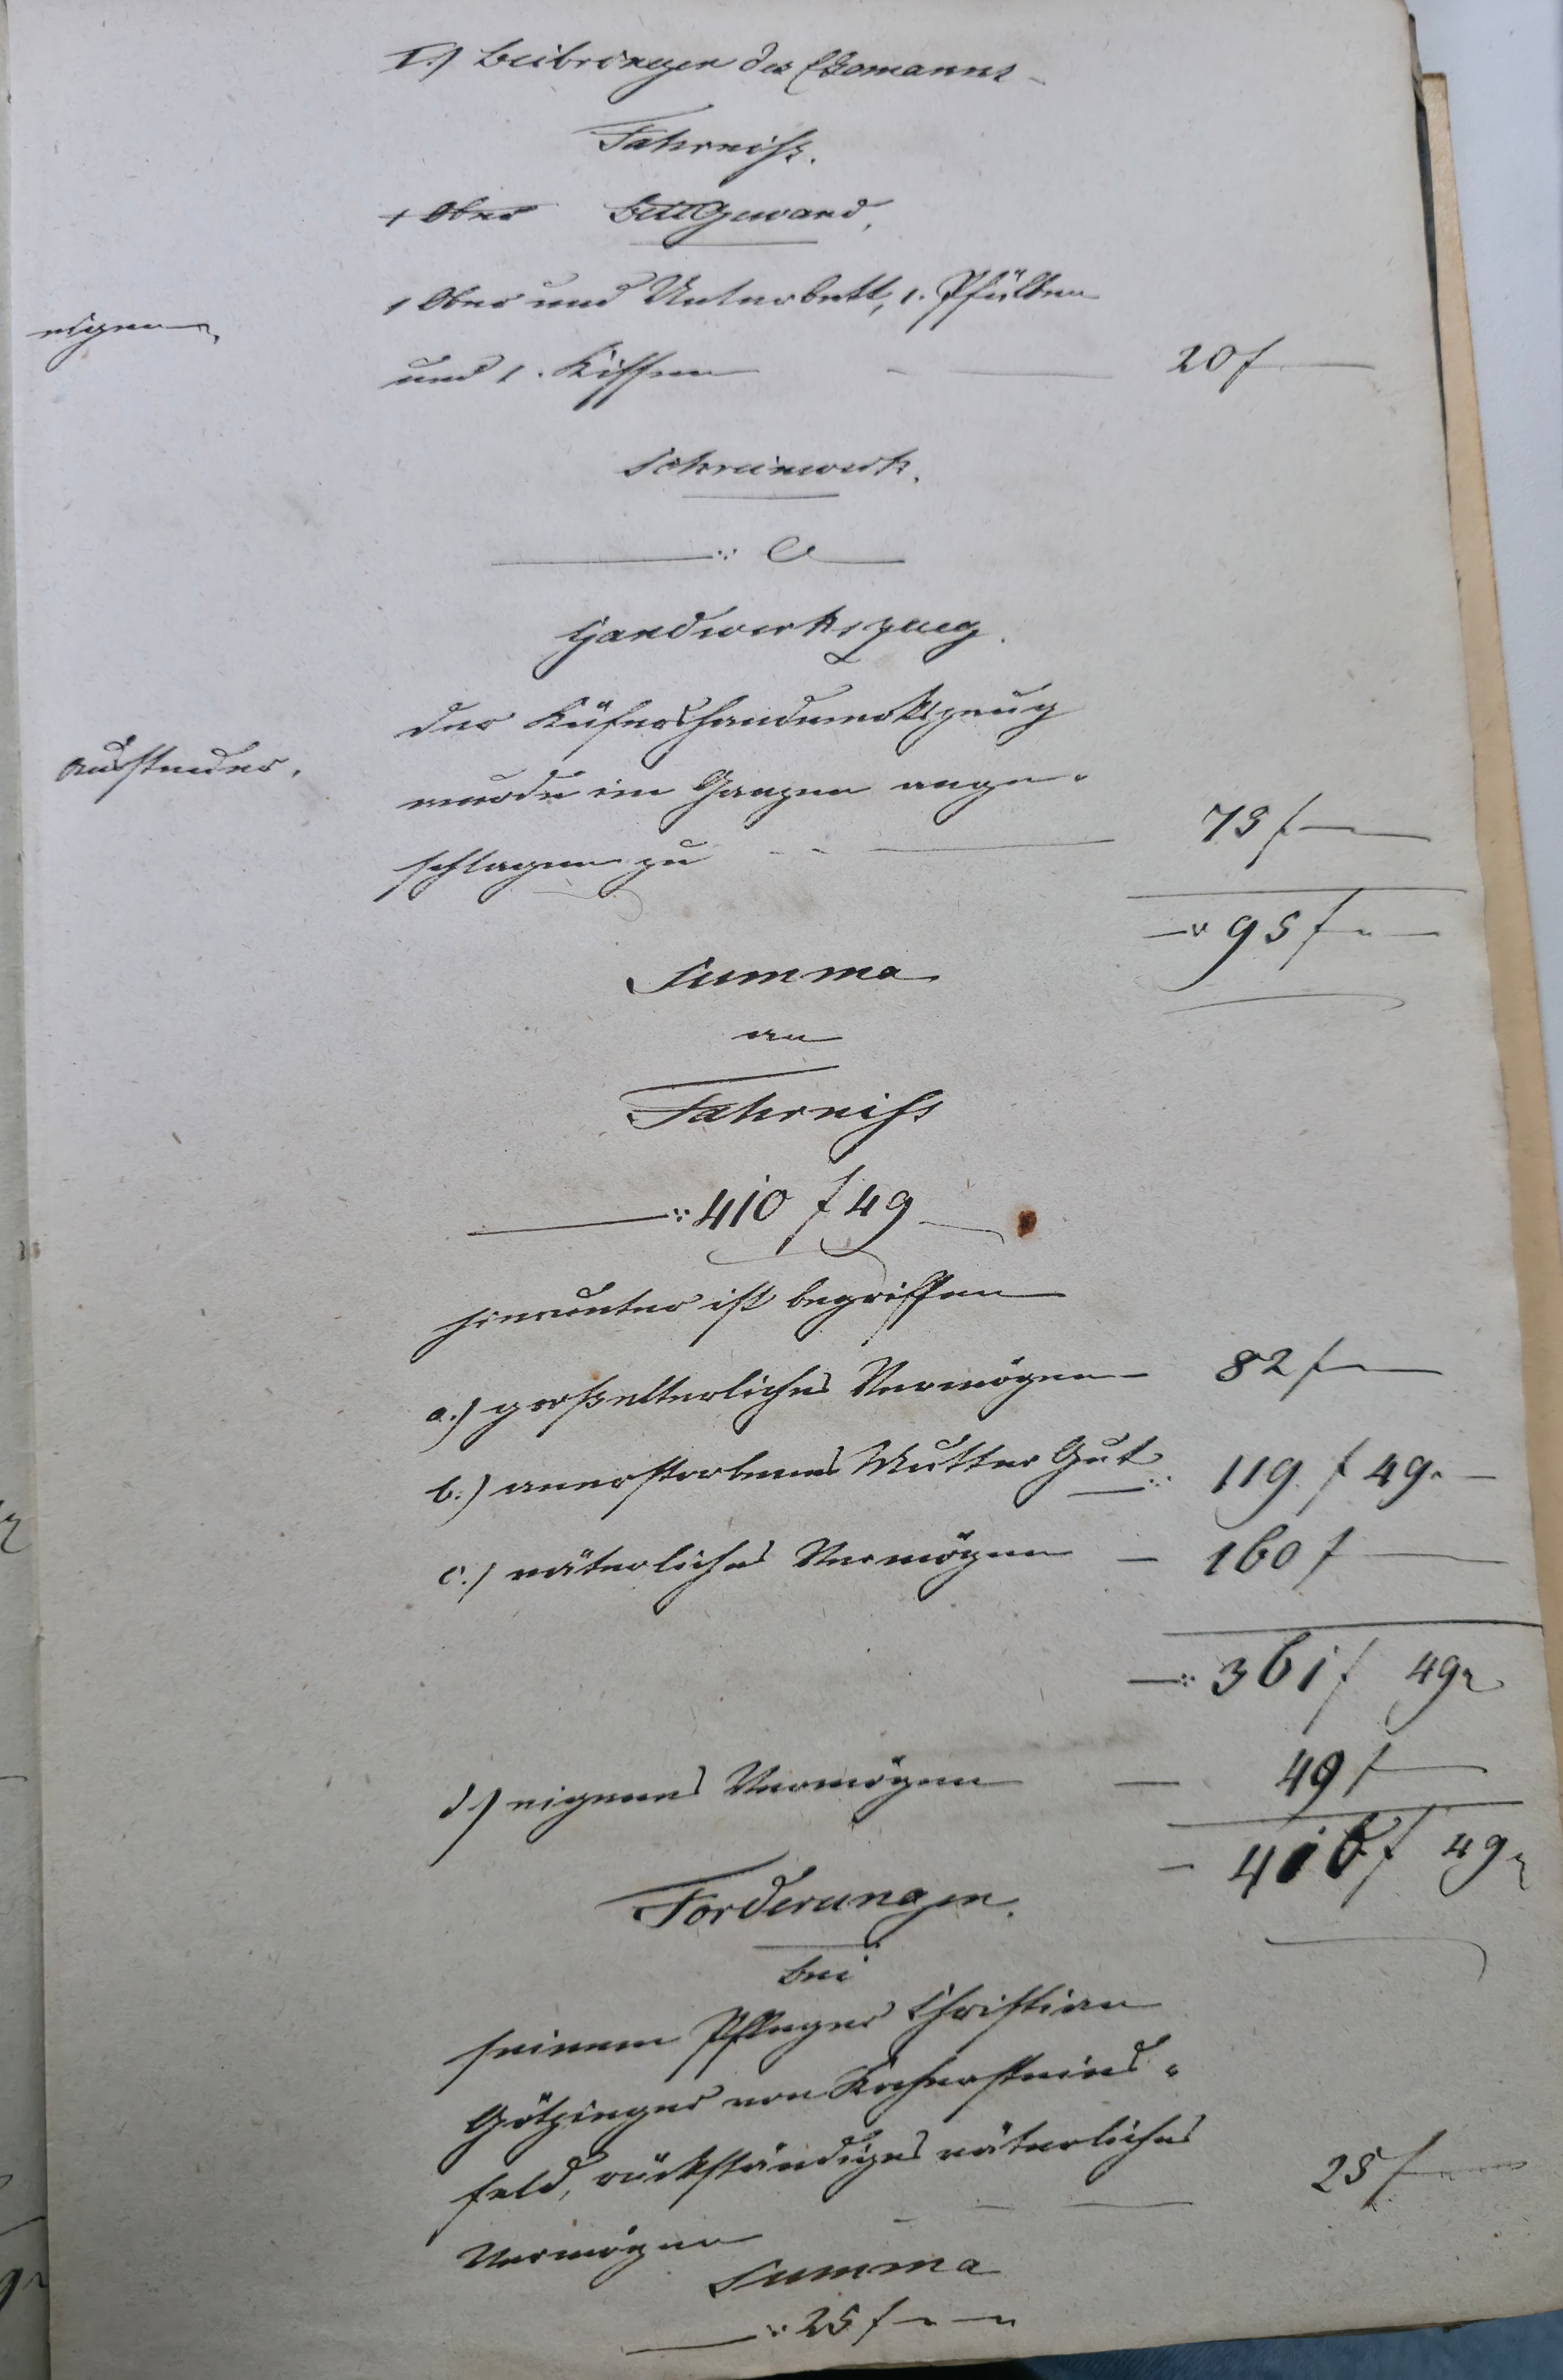 I.) Beibringen des Ehemanns
Fahrniß.
1 Ober Bettgewand.
1 Ober und Unterbett, 1. Pfülben
eigen
und 1. Kissen 20 f
Schreinwerk.
Handwerkszeug.
der Küfershandwerkszeug
wurde im Ganzen ange-
schlagen zu 75 f
95 f
Summa
an
Fahrniss
410 f 49
hierunter ist begriffen
a.) großelterliches Vermögen 82 f
b.) anerstorbenes Mutter Gut 119 f 49.
c.) väterliches Vermögen 160 f
361 f 49
d.) eigenes Vermögen 49 f
410 f 49
Forderungen.
bei
seinem Pfleger Christian
Götzinger von Kochersteins-
feld, rückständiges väterliches
Vermögen 25 f
Summa
25 f